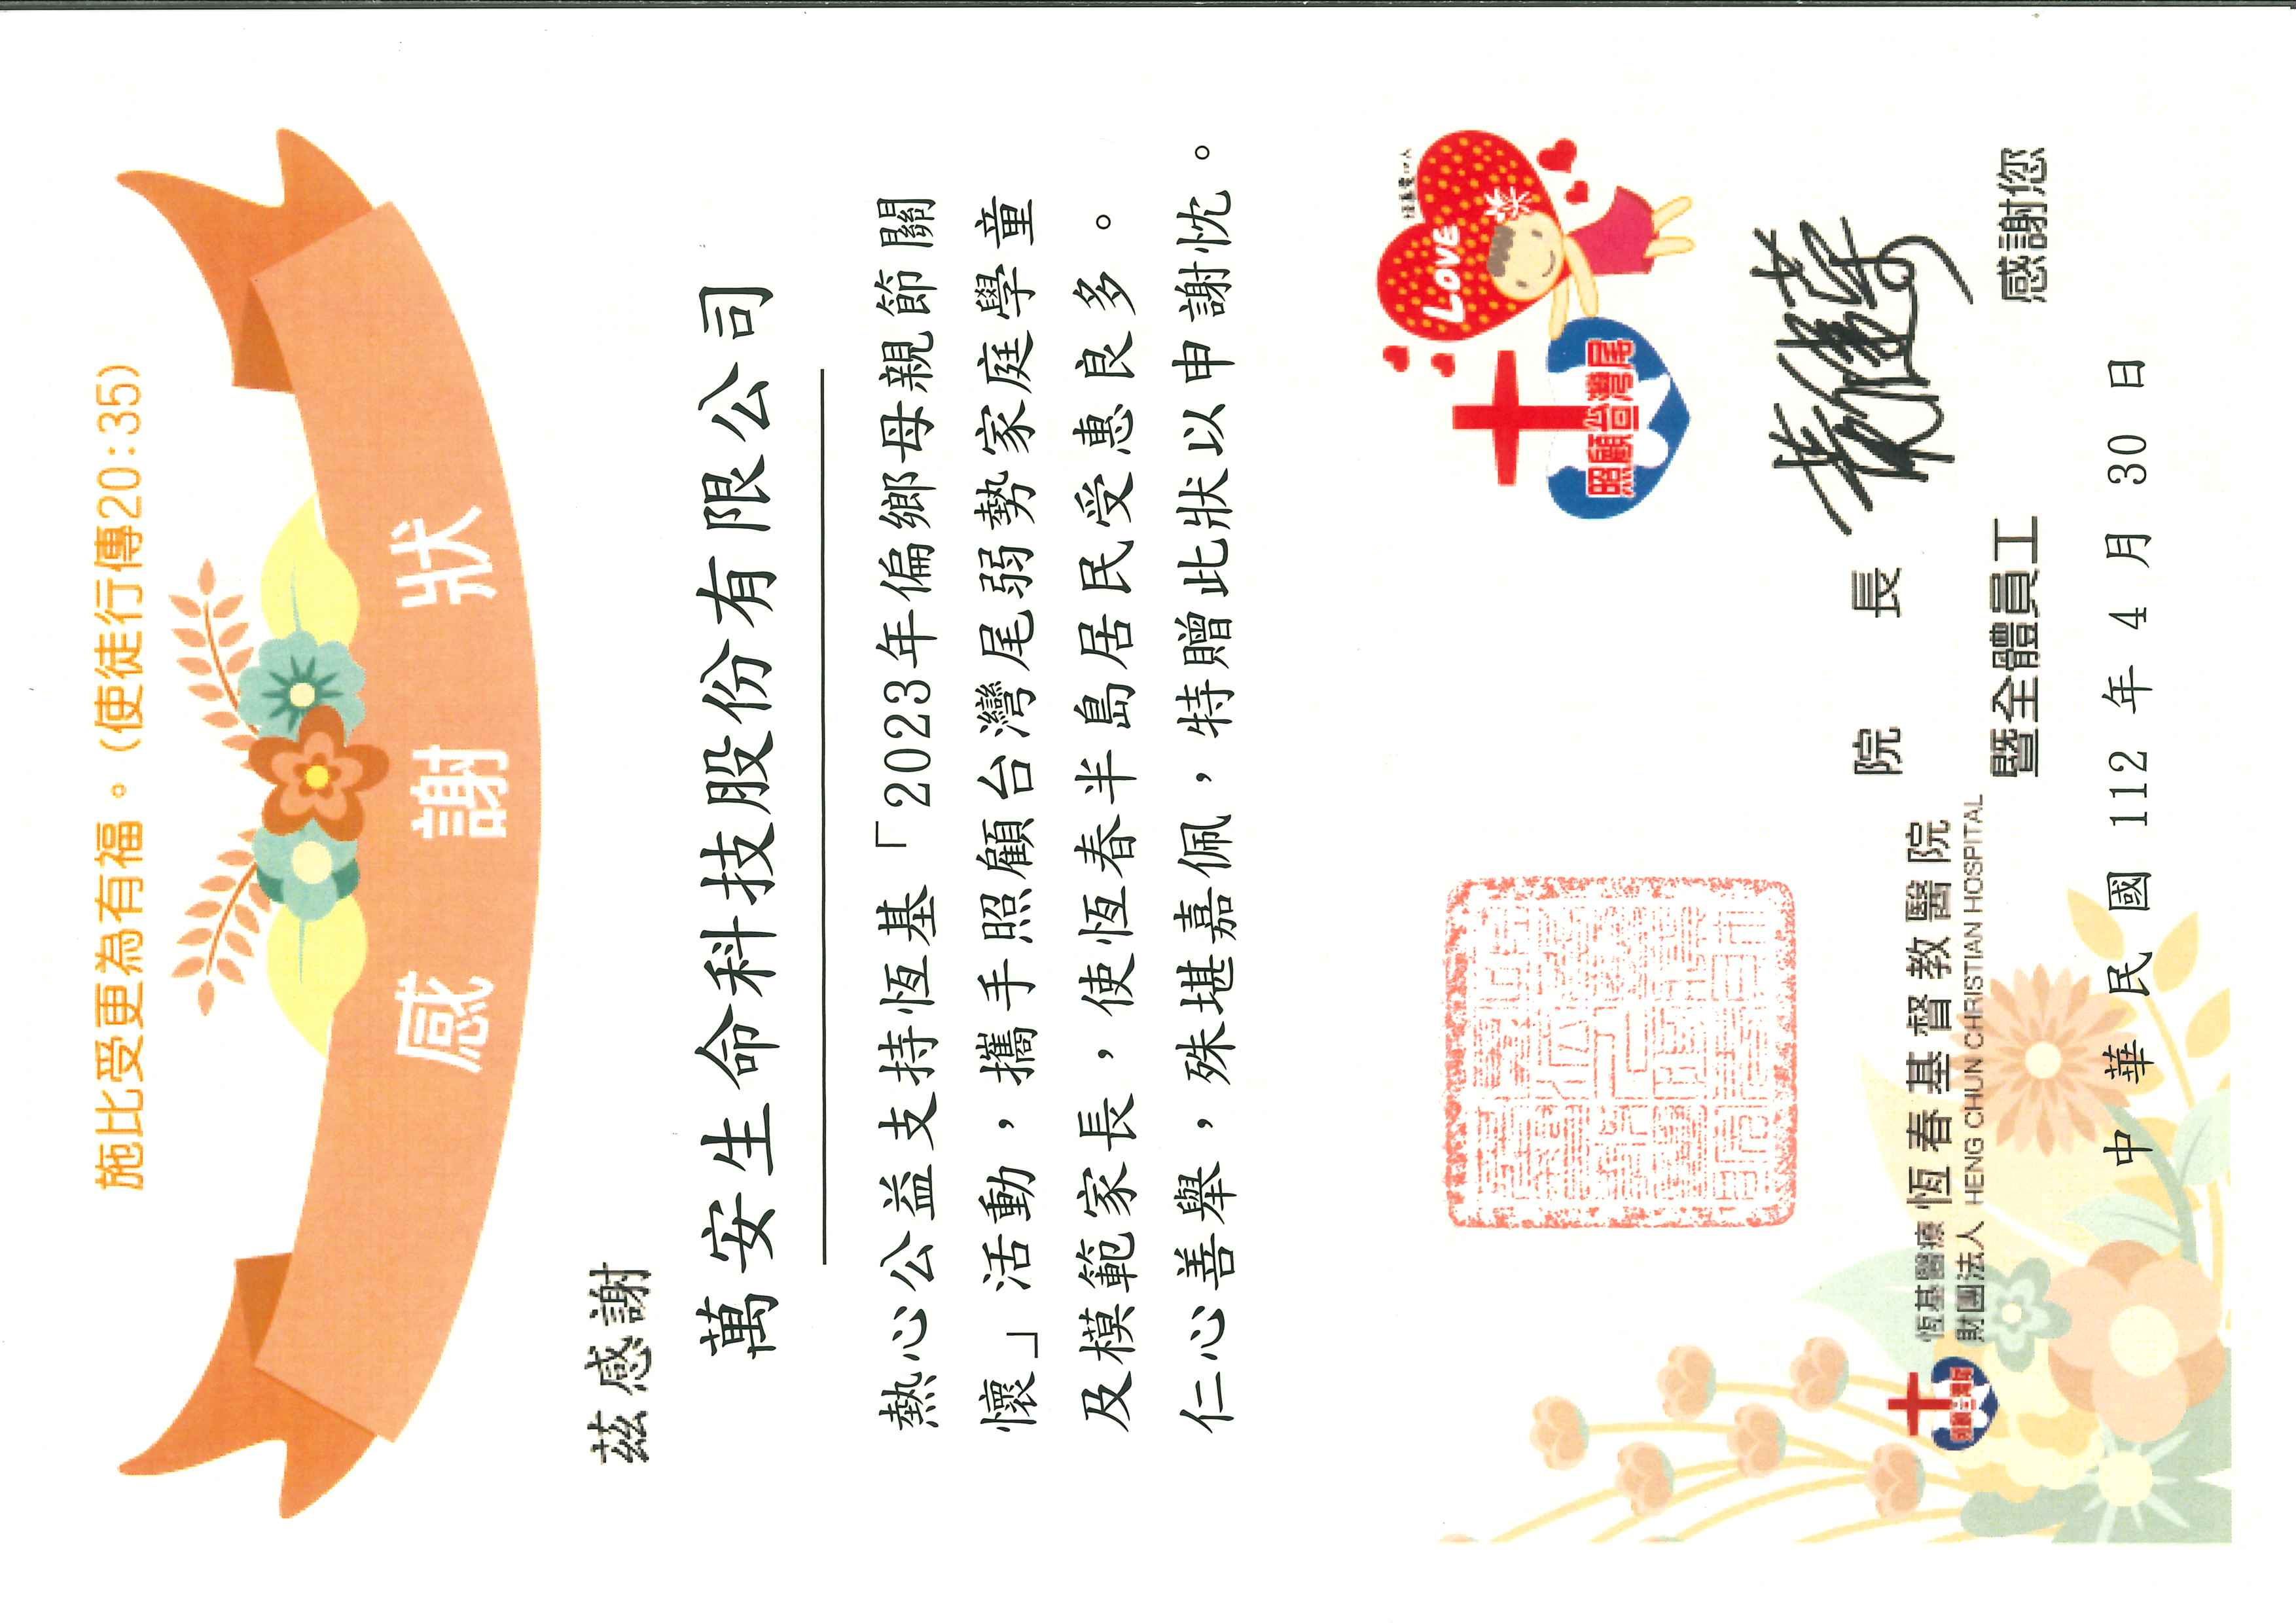 施比受更為有福。(使徒行傳20:35)
感謝狀
茲感謝
萬安生命科技股份有限公司
熱心公益支持恆基「2023年偏鄉母親節關
懷」活動，攜手照顧台灣尾弱勢家庭學童
及模範家長，使恆春半島居民受惠良多。
仁心善舉，殊堪嘉佩，特贈此狀以申謝忱。
LOVE
照顧台灣尾
院長
恆基醫療
財團法人
恆春基督教醫院
HENG CHUN CHRISTIAN HOSPITAL
照顧台灣尾
暨全體員工
感謝您
中華民國 112 年 4 月 30 日